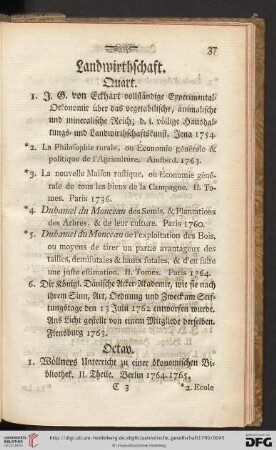 37
Landwirthschaft.
Quart.
1. J. G. von Eckhart vollständige Experimental-
Oekonomie über das vegetabilische, animalische
und mineralische Reich; d. i. völlige Haushal-
tungs- und Landwirthschaftskunst. Jena 1754.
*2. La Philosophie rurale, ou Economie générale &
politique de l'Agriculture. Amsterd. 1763.
*3. La nouvelle Maison rustique, ou Economie géné-
rale de tous les biens de la Campagne. II. To-
mes. Paris 1736.
*4 Duhamel du Monceau des Semis, & Plantations
des Arbres, & de leur culture. Paris 1760.
*5. Duhamel du Monceau de l'exploitation des Bois,
ou moyens de tirer un partie avantageux des
tailles, demifutaies & hautes futaies, & d'en faire
une juste estimation. II. Tomes. Paris 1764.
6. Die Königl. Dänische Acker-Akademie, wie sie nach
ihrem Sinn, Art, Ordnung und Zweck am Stif-
tungstage den 13 Julii 1762 entworfen wurde.
Ans Licht gestellt von einem Mitgliede derselben.
Flensburg 1763.
Octav.
1. Wöllners Unterricht zu einer ökonomischen Bi-
bliothek. II. Theile. Berlin 1764-1765.
C 3
*2. Ecole
http://digi.ub.uni-heidelberg.de/diglit/patriotische_gesellschaft1790/0045
© Universitätsbibliothek Heidelberg
gefördert durch die
DFG